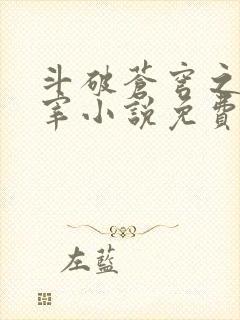 斗破蒼穹之
宰小說免費
左藍